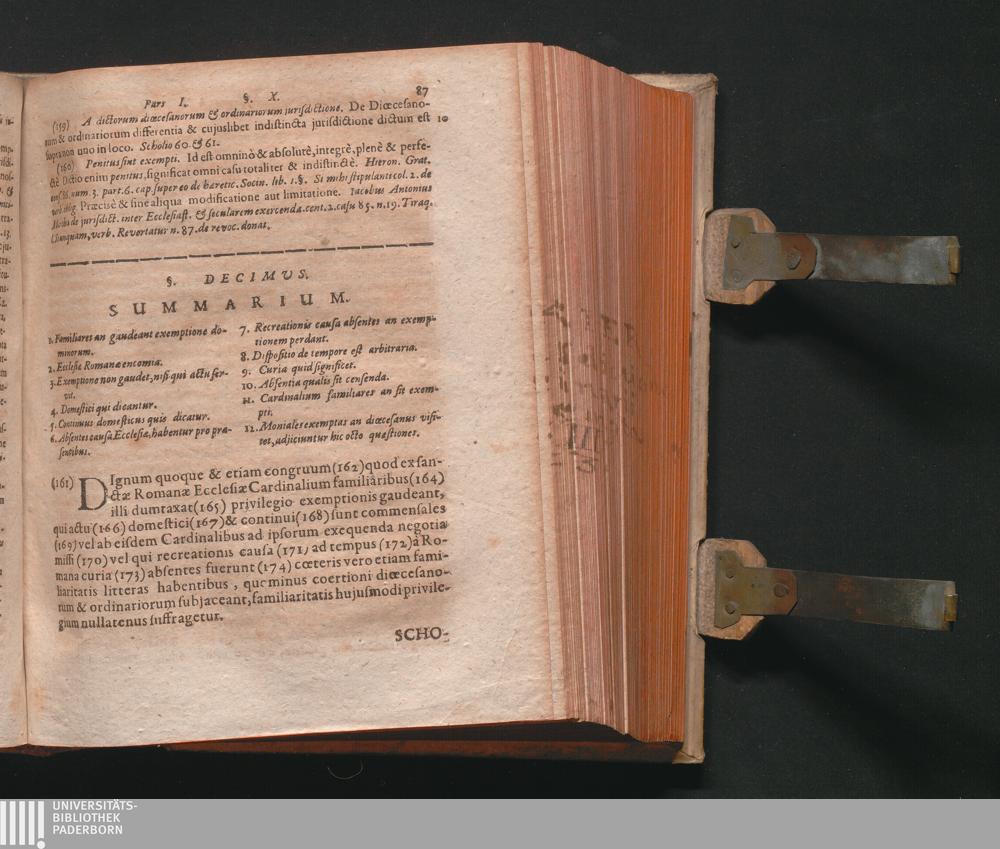 Pars I. §. X. 87
(159) A dictorum diœcesanorum & ordinariorum jurisdictione. De Diœcesano-
rum & ordinariorum differentia & cujuslibet indistincta jurisdictione dictum est 10
supra non uno in loco. Scholio 60. & 61.
(160) Penitus sint exempti. Id est omninò & absolutè, integrè, plenè & perfe-
ctè Dictio enim penitus, significat omni casu totaliter & indistinctè. Hieron. Grat.
num. 3. part. 6. cap. super eo de hæretic. Socin. lib. 1. §. Si mihi stipulanti col. 2. de
Præcisè & sine aliqua modificatione aut limitatione. Iacobus Antonius
de jurisdict. inter Ecclesiast. & secularem exercenda. cent. 2. casu 85. n. 19. Tiraq.
unquam, verb. Revertatur n. 87. de revoc. donat.
§. DECIMVS.
SUMMARIUM.
1. Familiares an gaudeant exemptione do-
minorum.
2. Ecclesiæ Romanæ encomia.
3. Exemptione non gaudet, nisi qui actu ser-
vit.
4. Domestici qui dicantur.
5. Continuus domesticus quis dicatur.
6. Absentes causa Ecclesiæ, habentur pro præ-
sentibus.
7. Recreationis causa absentes an exemp-
tionem perdant.
8. Dispositio de tempore est arbitraria.
9. Curia quid significet.
10. Absentia qualis sit censenda.
11. Cardinalium familiares an sit exem-
pti.
12. Moniales exemptas an diœcesanus visi-
tet, adjiciuntur hic octo quæstiones.
(161) DIgnum quoque & etiam congruum (162) quod ex san-
ctæ Romanæ Ecclesiæ Cardinalium familiaribus (164)
illi dumtaxat (165) privilegio exemptionis gaudeant,
qui actu (166) domestici (167) & continui (168) sunt commensales
(169) vel ab eisdem Cardinalibus ad ipsorum exequenda negotia
missi (170) vel qui recreationis causa (171) ad tempus (172) à Ro-
mana curia (173) absentes fuerunt (174) cœteris vero etiam fami-
liaritatis litteras habentibus, quominus coertioni diœcesano-
rum & ordinariorum subjaceant, familiaritatis hujusmodi privile-
gium nullatenus suffragetur.
SCHO-
UNIVERSITÄTS-
BIBLIOTHEK
PADERBORN